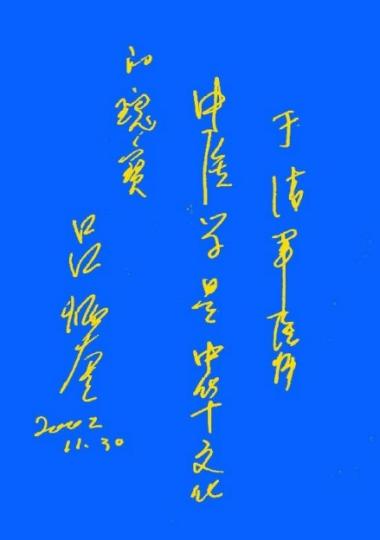 于洁军医师
中医学是中华文化
的瑰宝
2002
11.30